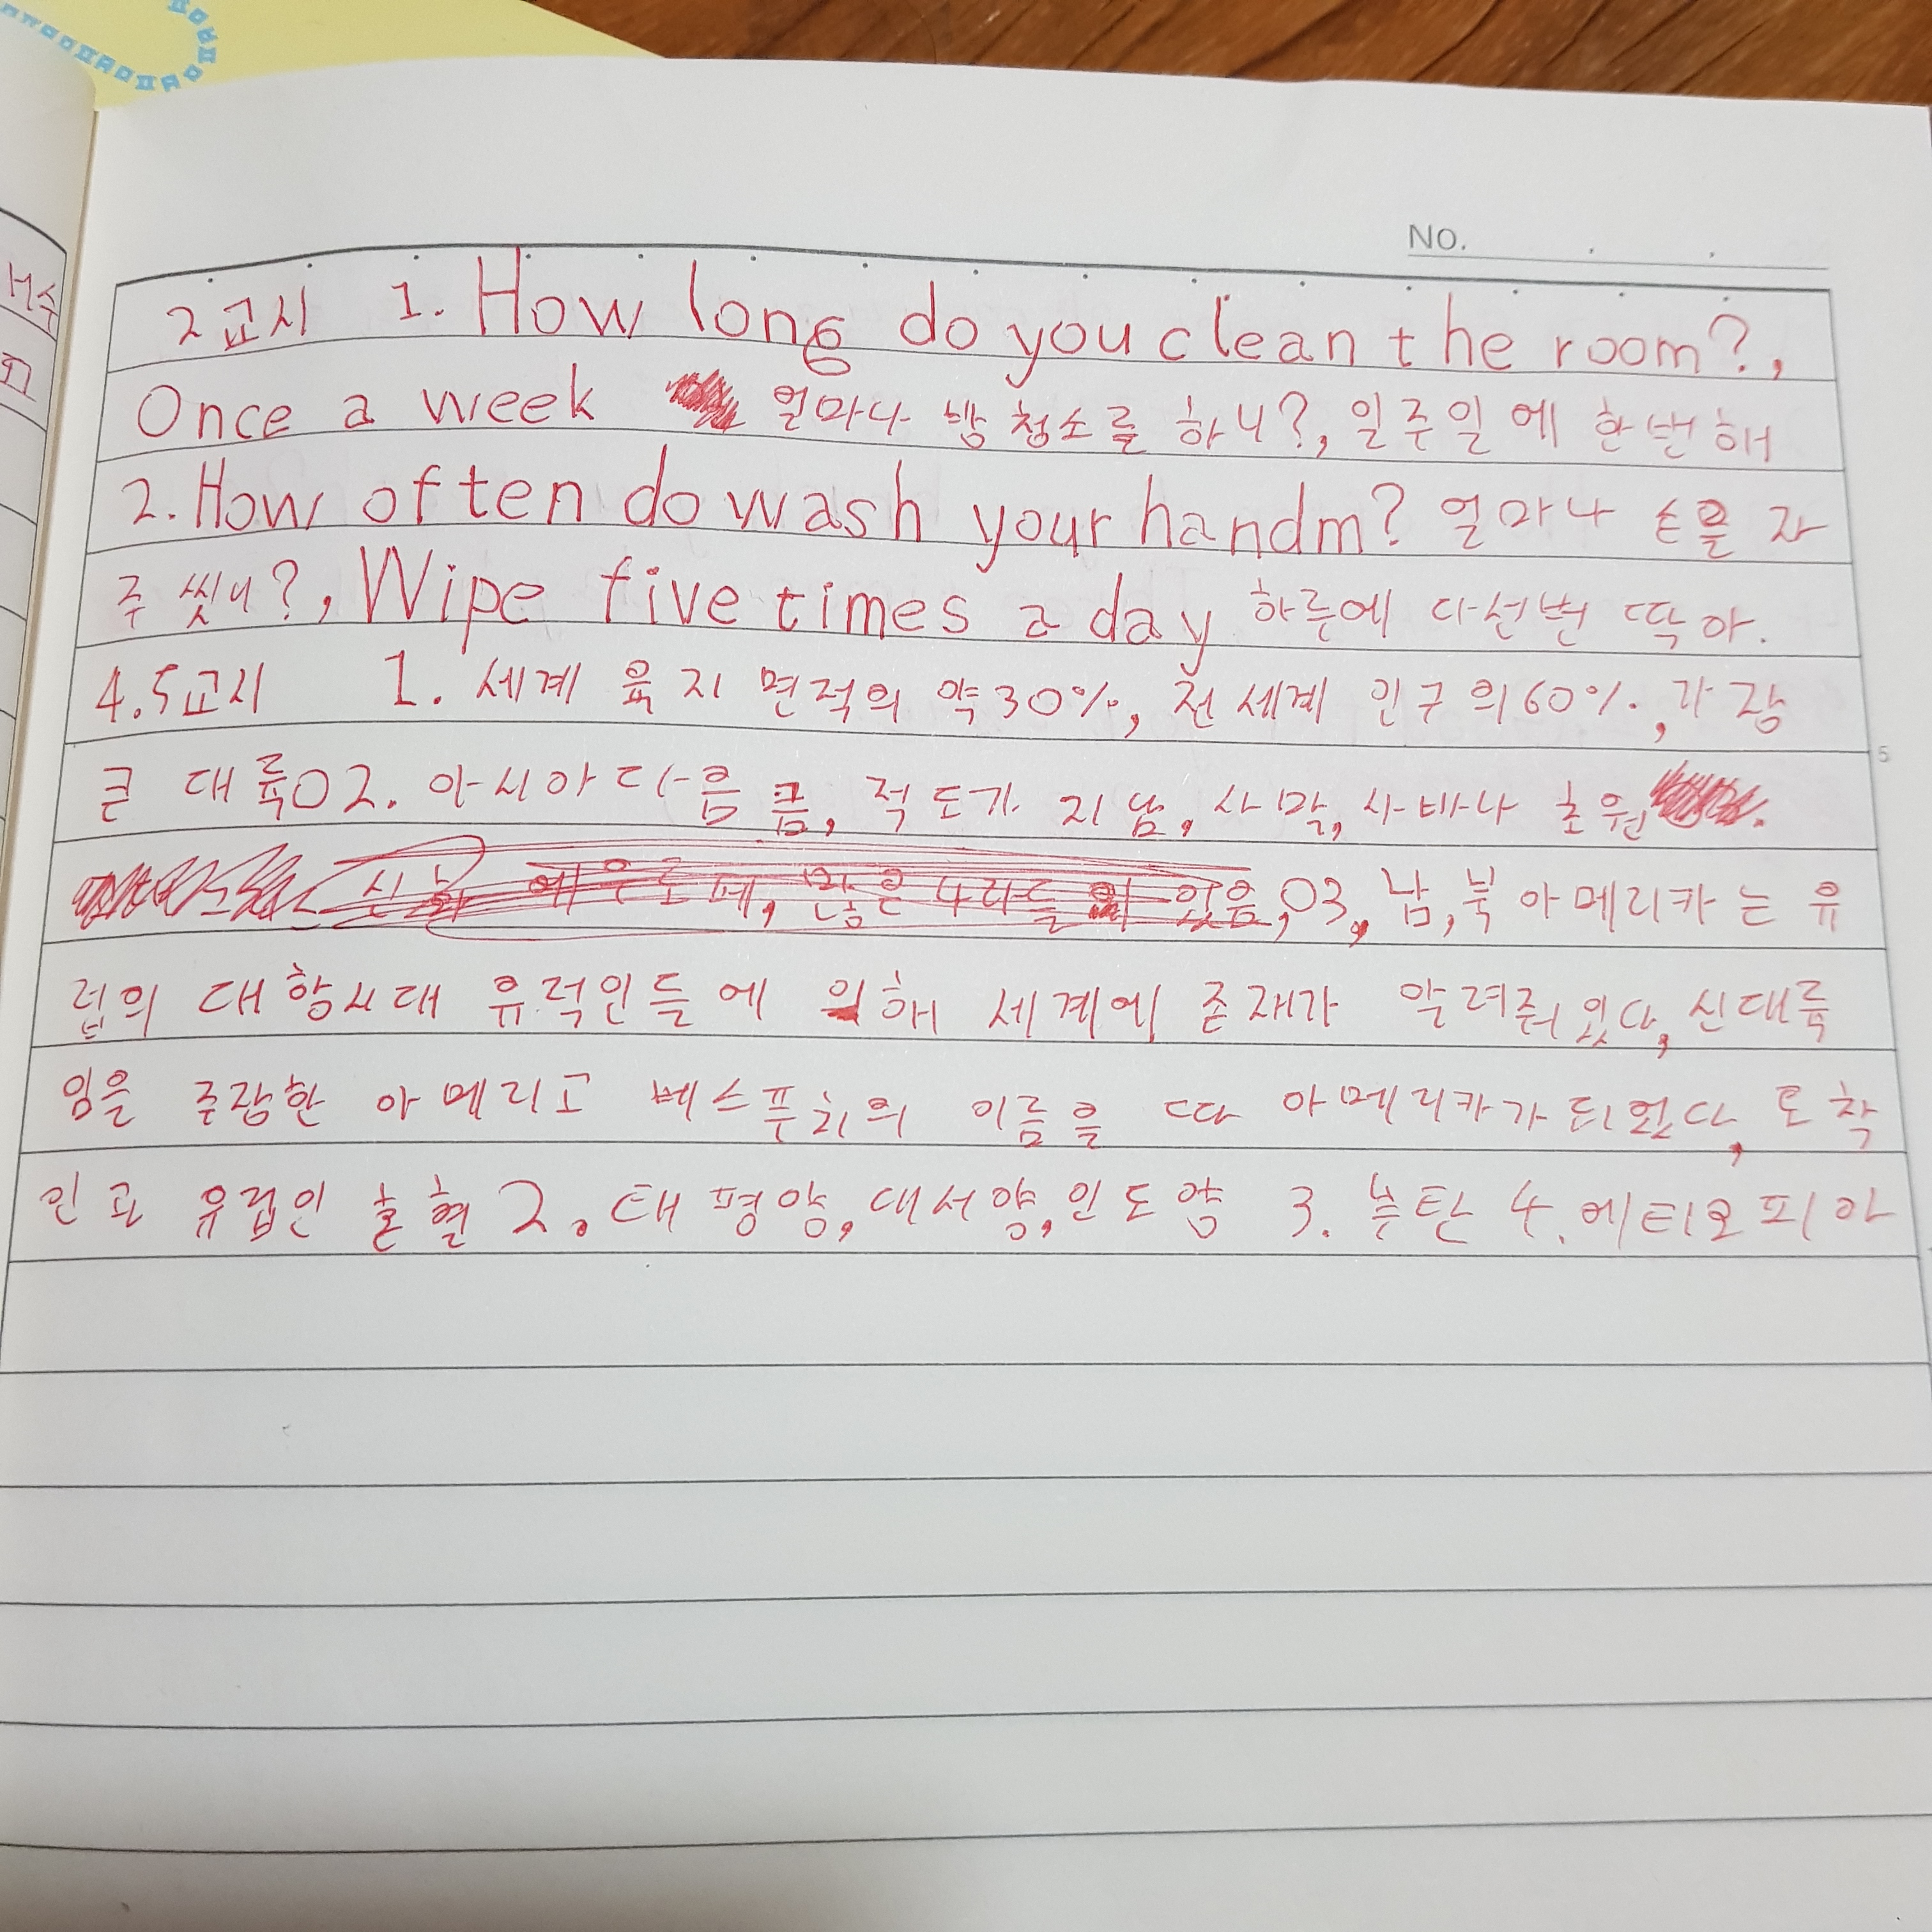 NO.
2교시 1. How long do you clean the room?,
Once a week 얼마나 방 청소를 하니?, 일주일에 한번해
2. How often do wash your handm? 얼마나 손을 자
주 씻니?, Wipe five times a day 하루에 다선번 딱아.
4.5교시 1. 세계 육지 면적의 약30%, 전 세계 인구의60%,가장
큰 대륙02. 아시아 다음 큼, 적도가 지남, 사막, 사바나 초원
많은 있음,03, 남,북 아메리카는 유
럽의 대항시대 유럭인들에 의해 세계에 존재가 알려줘있다, 신대륙
임을 주장한 아메리고 베스푸치의 이름을 따 아메리카가 되었다, 토착
민과 유럽인 혼혈 2. 태평양, 대서양, 인도양 3. 부탄 4. 에티오피아
5